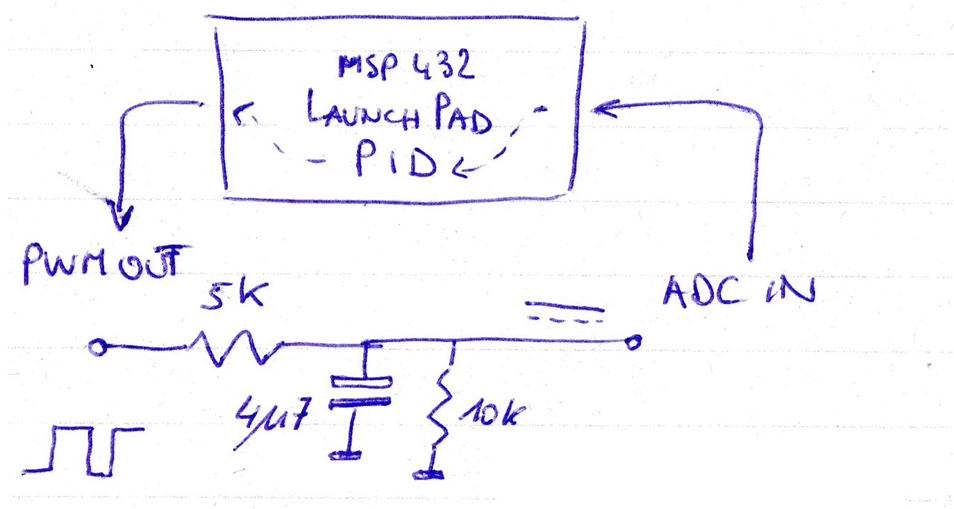 MSP 432
LAUNCH PAD
PID
PWM OUT
ADC IN
5K
4µ7
10K